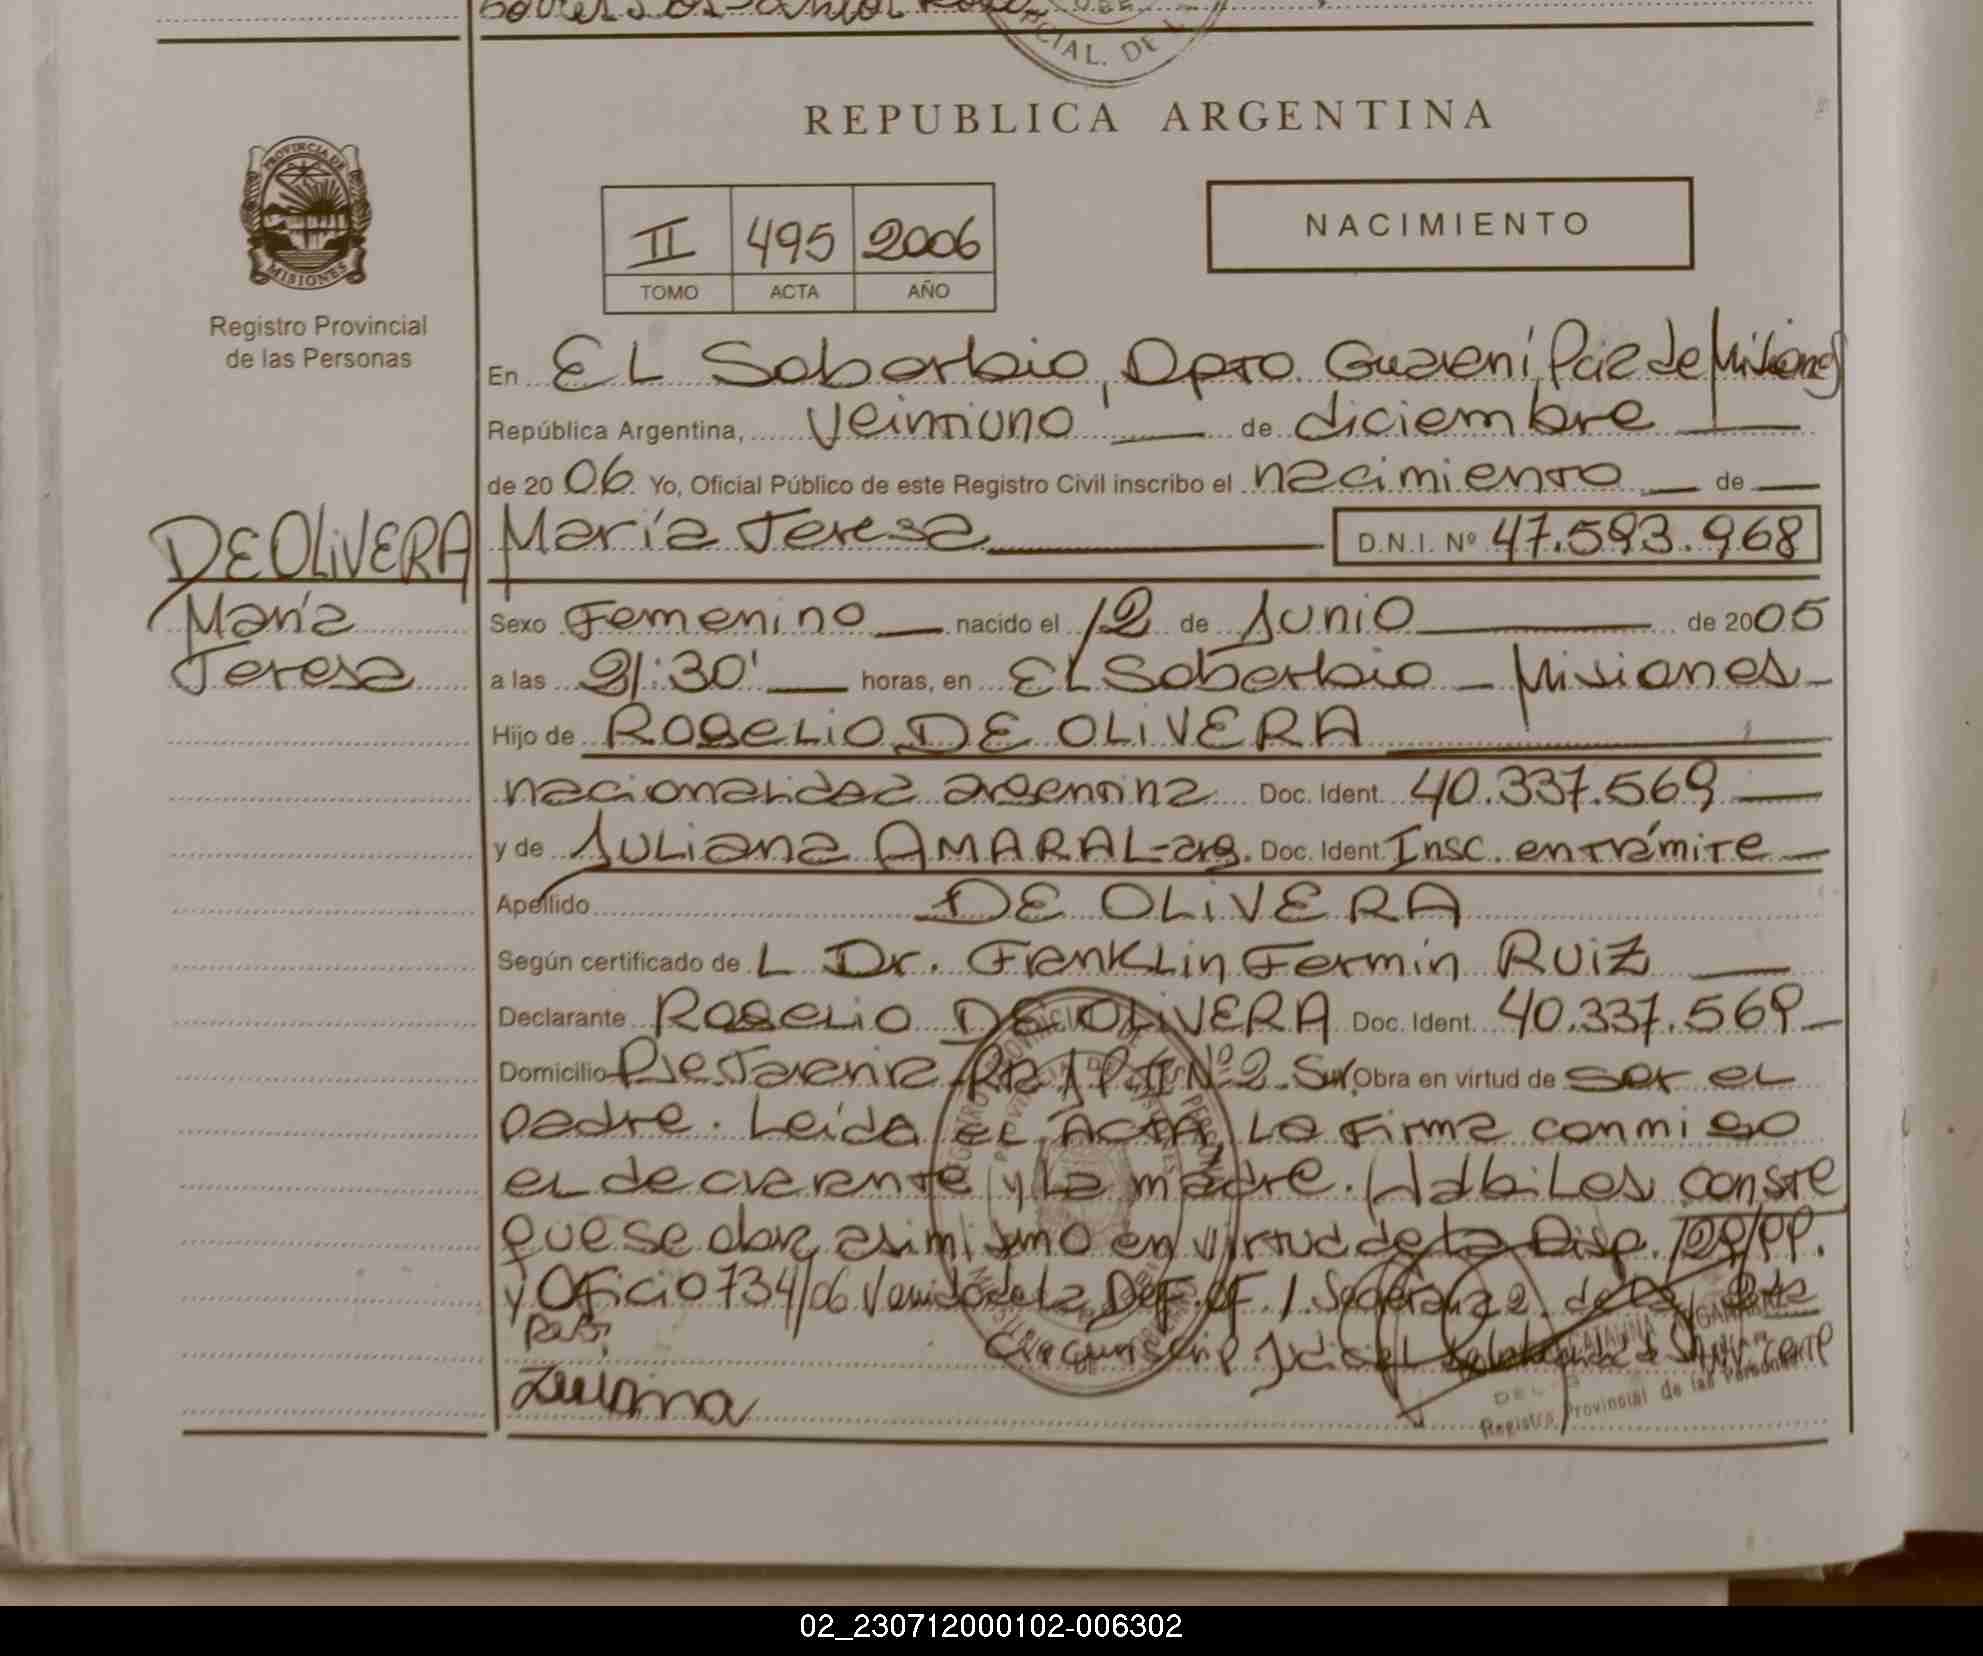 CIAL. DE L
REPUBLICA ARGENTINA
PROVINCIA DE
MISIONES
Registro Provincial
de las Personas
II 495 2006
TOMO ACTA AÑO
NACIMIENTO
En EL Soberbio, Dpto Guaraní Pcia de Misiones
República Argentina, veintiuno de diciembre
de 2006 Yo, Oficial Público de este Registro Civil inscribo el nacimiento de
DE OLIVERA
María
Teresa
María Teresa D.N.I. Nº 47.593.968
Sexo Femenino nacido el 12 de Junio de 2005
a las 21:30' horas, en EL Soberbio - Misiones
Hijo de ROGELIO DE OLIVERA
nacionalidad argentina Doc. Ident. 40.337.569
y de JULiana AMARAL-arg. Doc. Ident. Insc. en trámite
Apellido DE OLIVERA
Según certificado de L Dr. Franklin Fermín RUIZ
Declarante ROGELIO DE OLIVERA Doc. Ident. 40.337.569
Domicilio Nº 2 Obra en virtud de ser el
padre. Leída el ACTA, La firma conmigo
el declarante y la madre. Habiles conste
que se obra asimismo en virtud de la Disp.
y Oficio 734/06 de la Def. Of.
Circunscrip. Judicial
Registro Provincial de las Personas
02_230712000102-006302